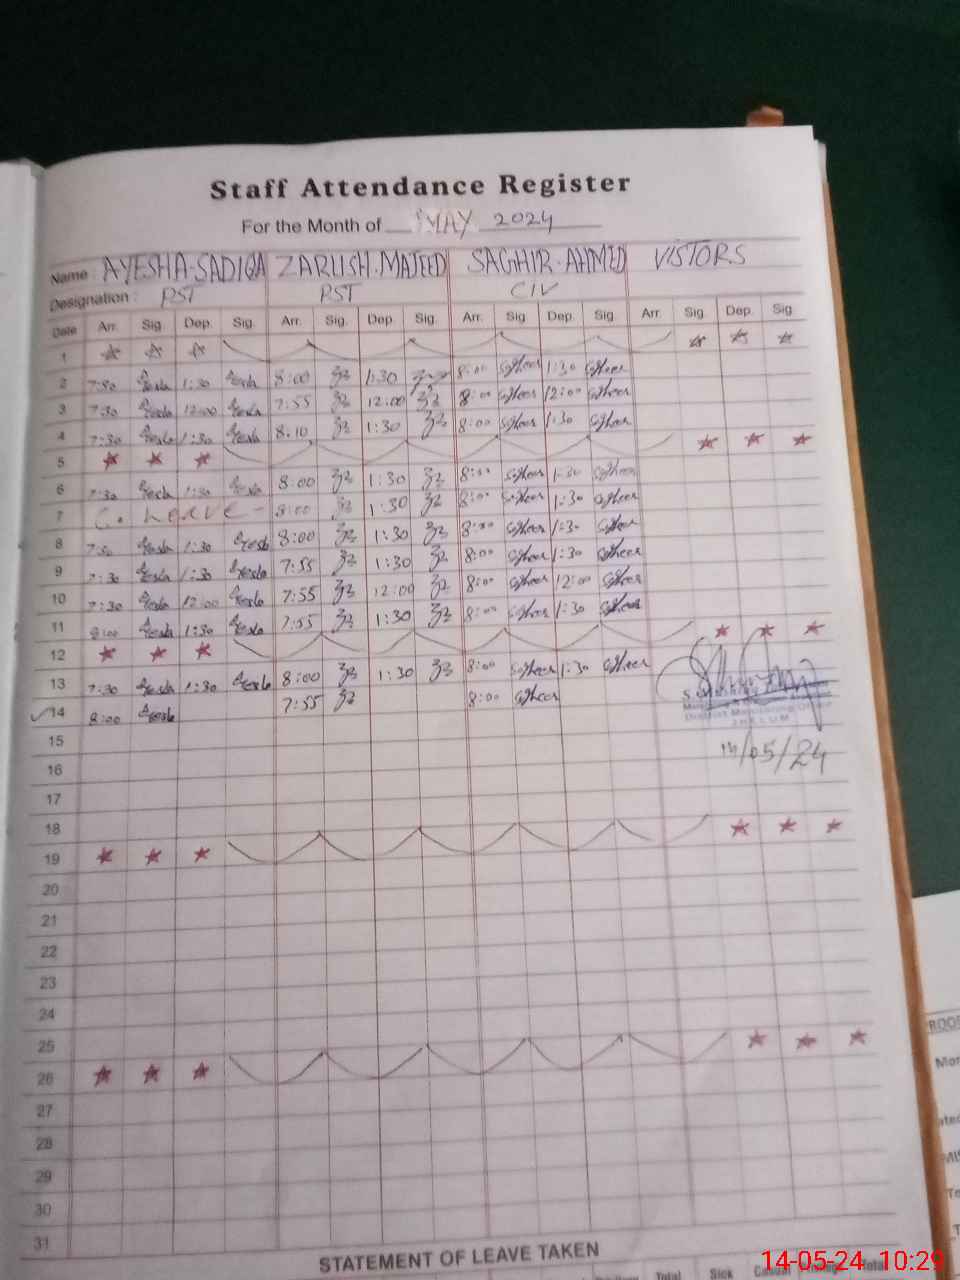 Staff Attendance Register
For the Month of MAY 2024
Name : AYESHA-SADIQA ZARUSH.MAJEED SAGHIR.AHMED VISTORS
Designation : PST PST CIV
Date Arr. Sig. Dep. Sig. Arr. Sig. Dep. Sig. Arr. Sig. Dep. Sig. Arr. Sig. Dep. Sig.
1
2 7:30 1:30 8:00 1:30 8:00 1:30
3 7:30 12:00 7:55 12:00 8:00 12:00
4 7:30 1:30 8.10 1:30 8:00 1:30
5
6 7:30 1:30 8:00 1:30 8:00 1:30
7 C. Leave - 8:00 1:30 8:00 1:30
8 7:30 1:30 8:00 1:30 8:00 1:30
9 7:30 1:30 7:55 1:30 8:00 1:30
10 7:30 12:00 7:55 12:00 8:00 12:00
11 8:00 1:30 7:55 1:30 8:00 1:30
12
13 7:30 1:30 8:00 1:30 8:00 1:30
14 8:00 7:55 8:00
District Monitoring Officer
JHELUM
15
14/05/24
16
17
18
19
20
21
22
23
24
25
26
27
28
29
30
31
STATEMENT OF LEAVE TAKEN
Total Sick Casual Total
14-05-24 10:29